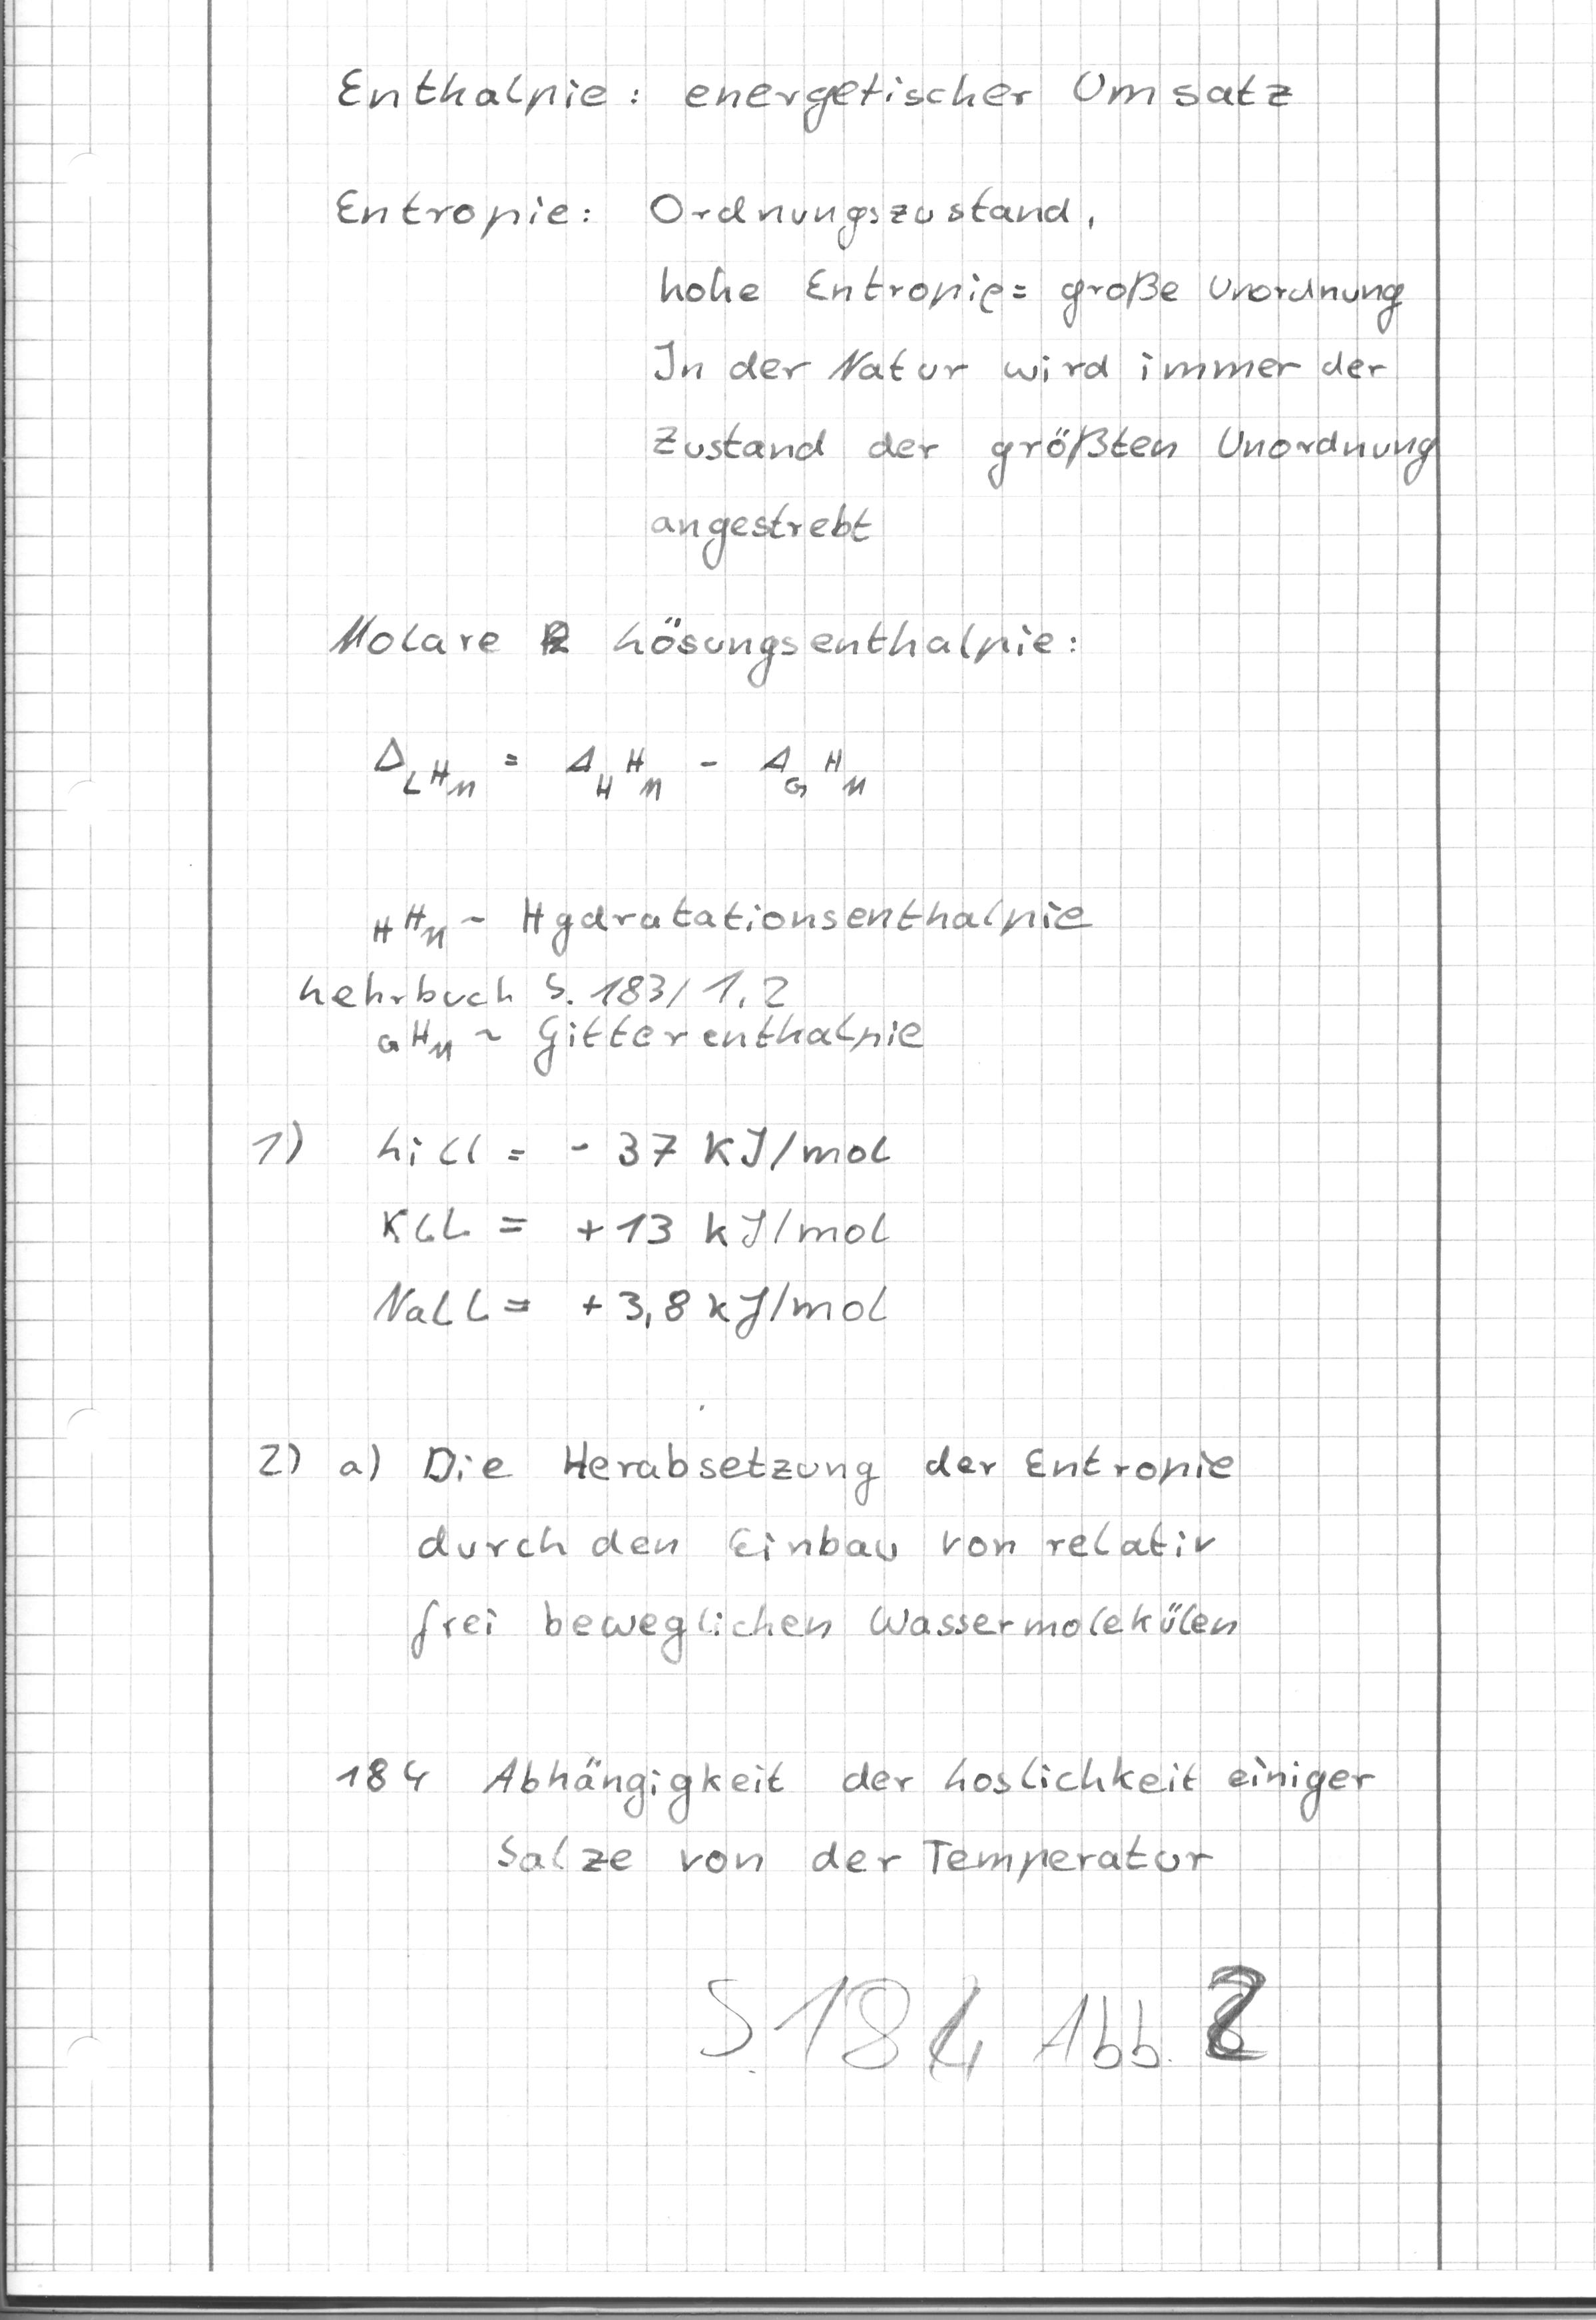 Enthalpie: energetischer Umsatz
Entropie: Ordnungszustand,
hohe Entropie= große Unordnung
In der Natur wird immer der
Zustand der größten Unordnung
angestrebt
Molare Lösungsenthalpie:
Δ_L H_M = Δ_H H_M - Δ_G H_M
_H H_M ~ Hydratationsenthalpie
Lehrbuch S. 183/ 1, 2
_G H_M ~ Gitterenthalpie
1) LiCl = - 37 KJ/mol
KCL = +13 kJ/mol
NaCL = + 3,8 kJ/mol
2) a) Die Herabsetzung der Entropie
durch den Einbau von relativ
frei beweglichen Wassermolekülen
184 Abhängigkeit der Loslichkeit einiger
Salze von der Temperatur
S. 184 Abb. 2